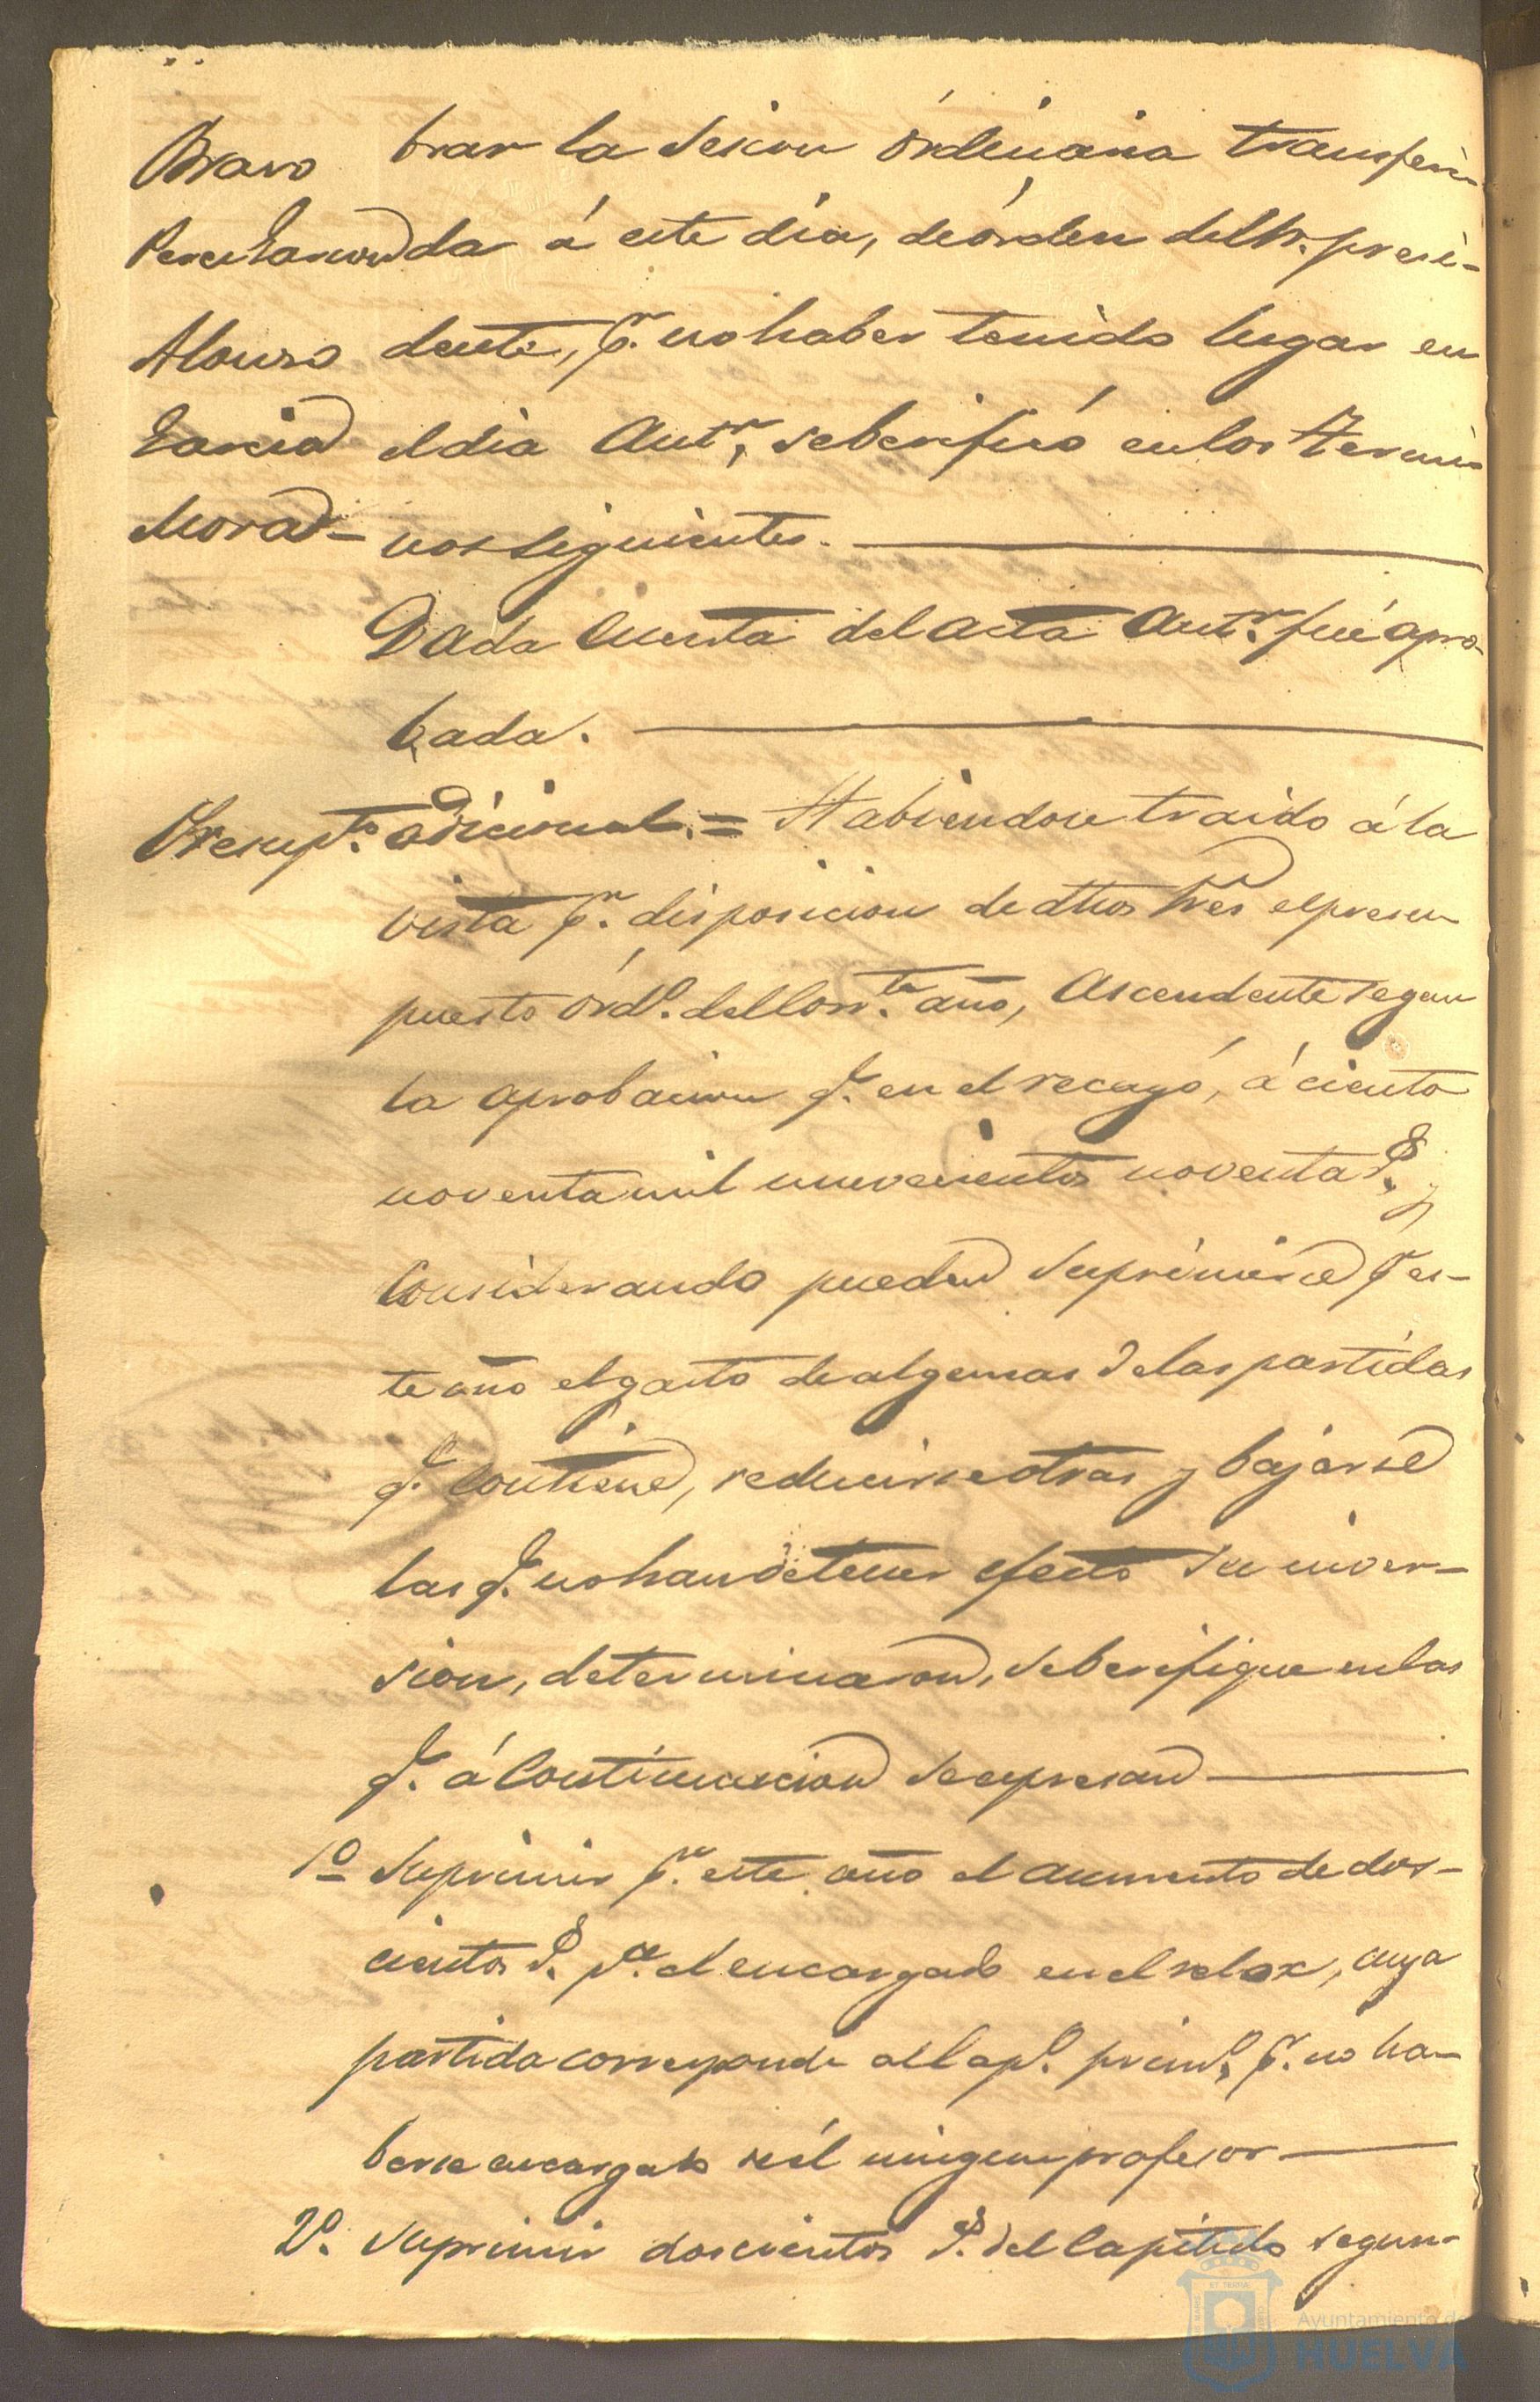 Bravo brar la sesion órdinaria transferi-
Perez Garcia da á este dia, de órden del Sr. presi-
Alonso dente, pr. no haber tenido lugar en
Garcia el dia Antr., se berificó en los termi-
Mora- nos siguientes.
Dada Cuenta del acta Antr. fué apro-
bada.
Presupto. adicional.= Habiendose traido á la
vista pr. disposicion de dhos Sres el presu
puesto órdo. del Corrte. año, Ascendente segun
la aprobacion q. en el recayó, á ciento
noventa mil nuevecientos noventa Rs. y
Considerando pueden suprimirse pr es-
te año el gasto de algunas de las partidas
q. Contiene, reducirse otras y bajarse
las q. no han de tener efecto su inver-
sion, determinaron, se berifique en las
q. á Continuacion se expresan
1º Suprimir pr. este año el aumento de dos-
cientos Rs. pa. el encargado en el relox, cuya
partida corresponde al Capo. primo. pr. no ha-
berse encargado de él ningun profesor
2º. Suprimir doscientos Rs. del Capitulo segun-
Ayuntamiento de
HUELVA